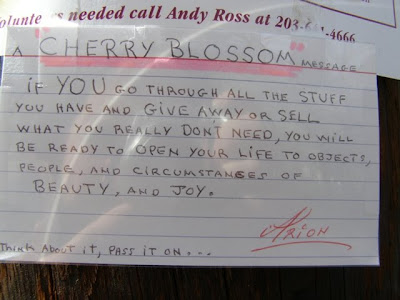 Volunteers needed call Andy Ross at 203- -4666
A CHERRY BLOSSOM MESSAGE
IF YOU GO THROUGH ALL THE STUFF
YOU HAVE AND GIVE AWAY OR SELL
WHAT YOU REALLY DONT NEED, YOU WILL
BE READY TO OPEN YOUR LIFE TO OBJECTS,
PEOPLE, AND CIRCUMSTANSES OF
BEAUTY, AND JOY.
ARION
THINK ABOUT IT, PASS IT ON...